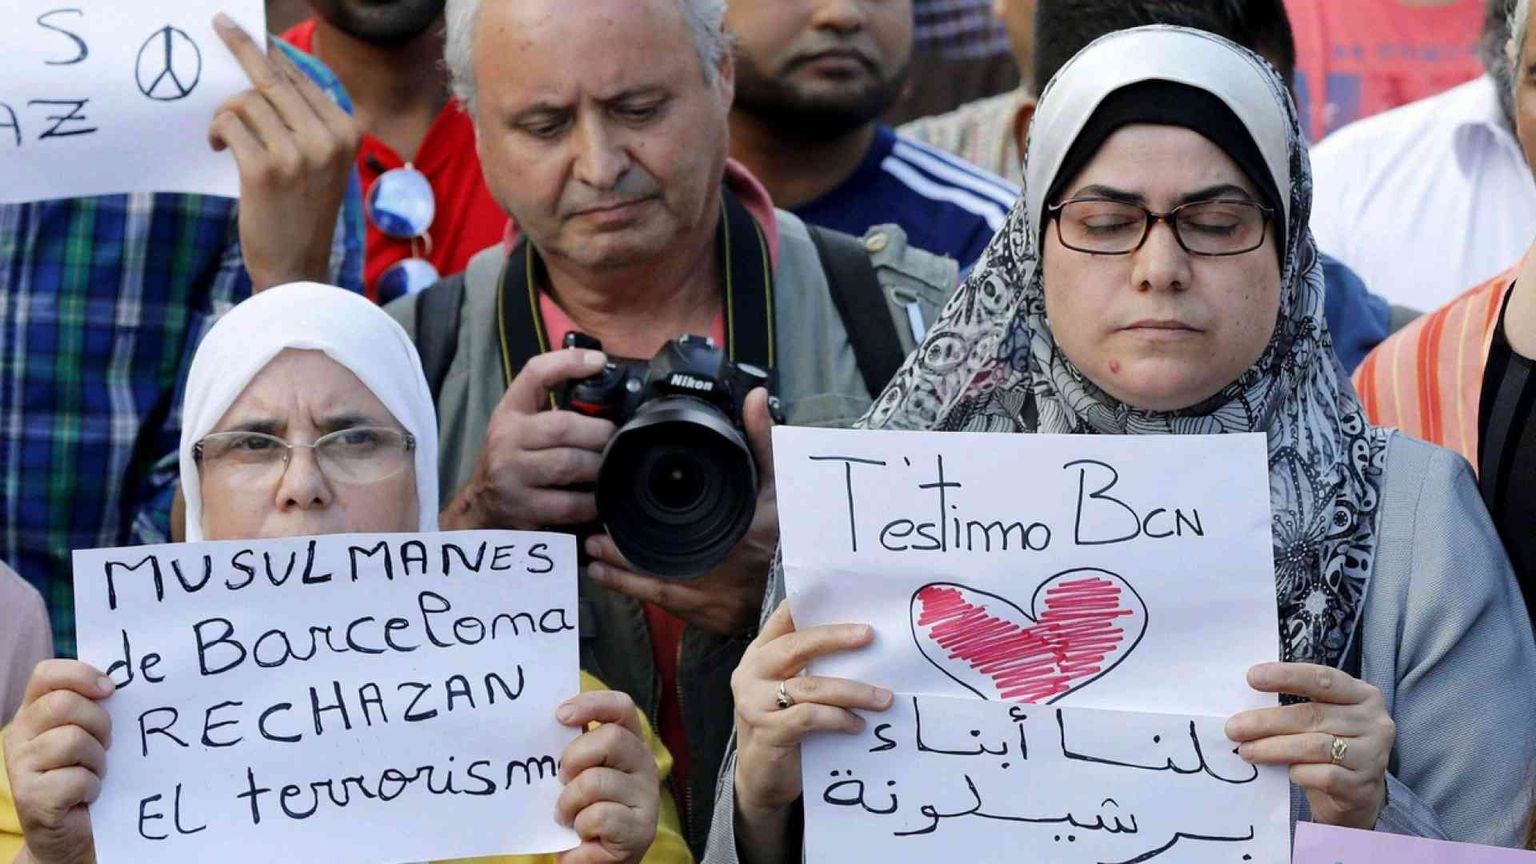 S
AZ
Nikon
MUSULMANES
de Barcelona
RECHAZAN
El terrorism
T'estimo BCN
كلنا أبناء
برشيلونة